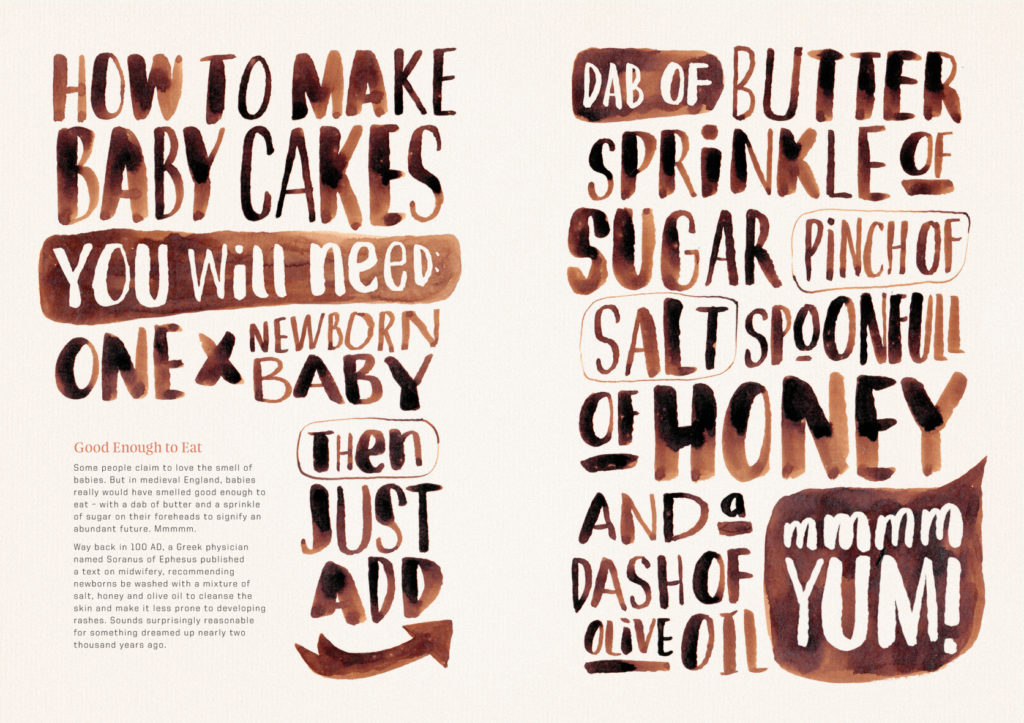 HOW TO MAKE
BABY CAKES
YOU Will need:
ONE X NEWBORN
BABY
Good Enough to Eat
Some people claim to love the smell of
babies. But in medieval England, babies
really would have smelled good enough to
eat – with a dab of butter and a sprinkle
of sugar on their foreheads to signify an
abundant future. Mmmmm.
Way back in 100 AD, a Greek physician
named Soranus of Ephesus published
a text on midwifery, recommending
newborns be washed with a mixture of
salt, honey and olive oil to cleanse the
skin and make it less prone to developing
rashes. Sounds surprisingly reasonable
for something dreamed up nearly two
thousand years ago.
THen
JUST
ADD
DAB OF BUTTER
SPRiNKLE OF
SUGAR PiNCH OF
SALT SPOONFULL
OF HONEY
AND a
DASH OF
OLIVE OIL
mmmm
YUM!